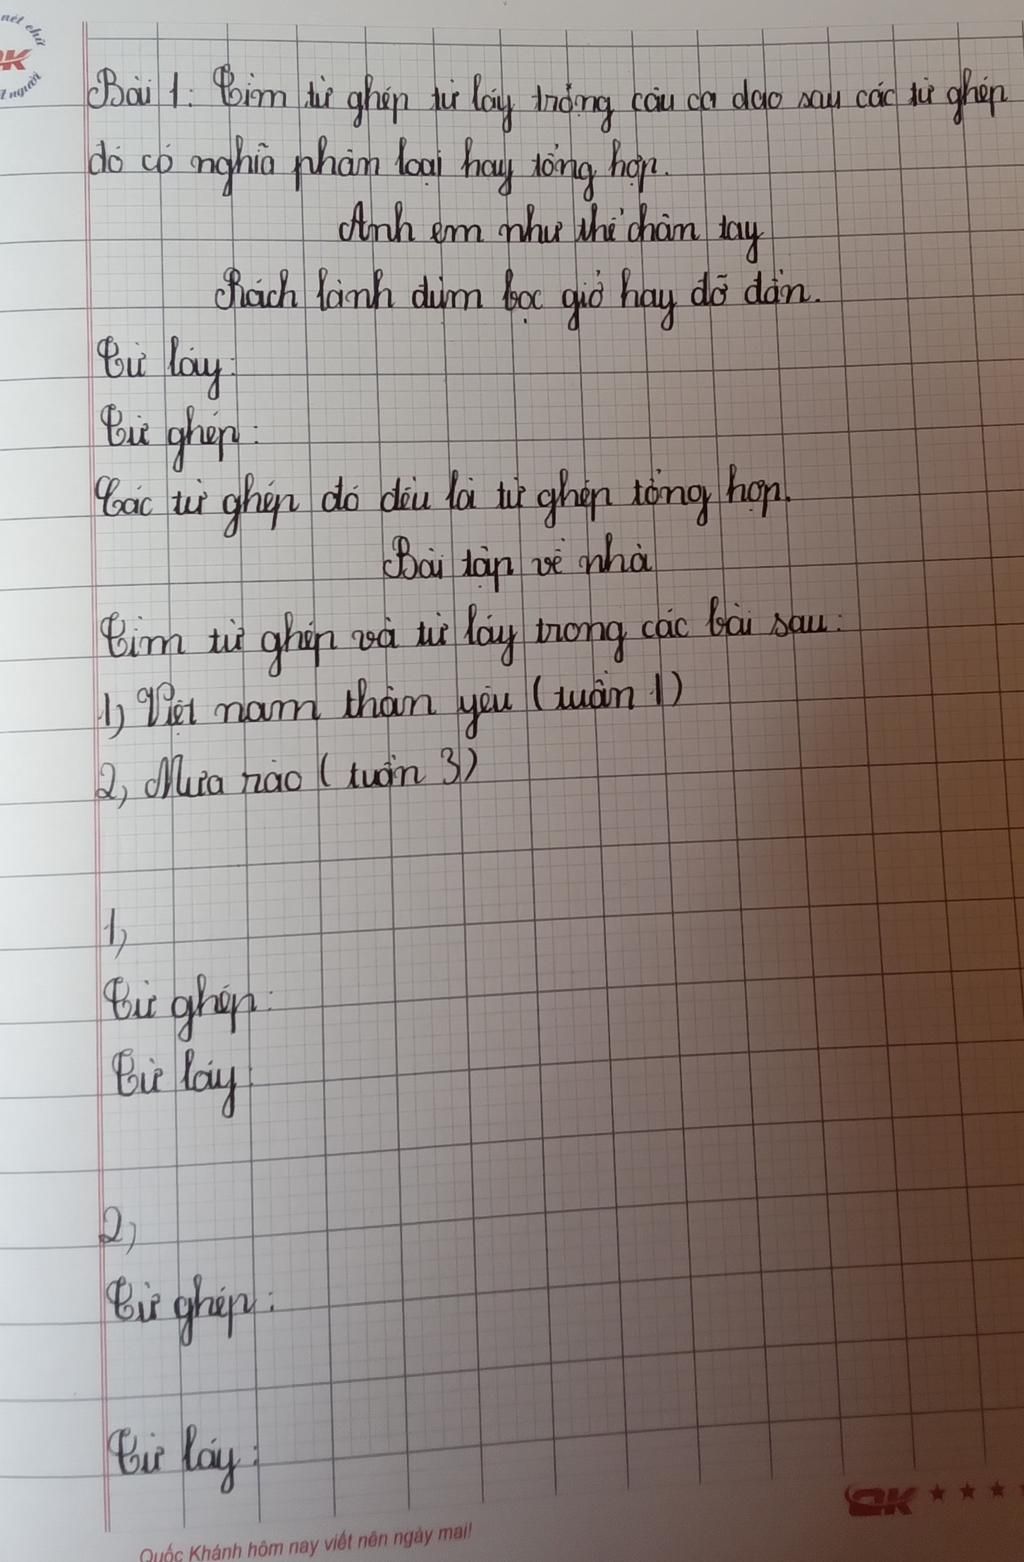 nét chữ
K
t người
Bài 1: Tìm từ ghép từ láy trong câu ca dao sau các từ ghép
đó có nghĩa phân loại hay tổng hợp.
Anh em như thể chân tay
Rách lành đùm bọc giở hay đỡ đần.
Từ láy:
Từ ghép:
Các từ ghép đó đều là từ ghép tổng hợp.
Bài tập về nhà
Tìm từ ghép và từ láy trong các bài sau:
1, Việt nam thân yêu (tuần 1)
2, Mưa rào (tuần 3)
1,
Từ ghép:
Từ láy
2,
Từ ghép:
Từ láy:
QK ★ ★ ★
Quốc Khánh hôm nay viết nên ngày mai!